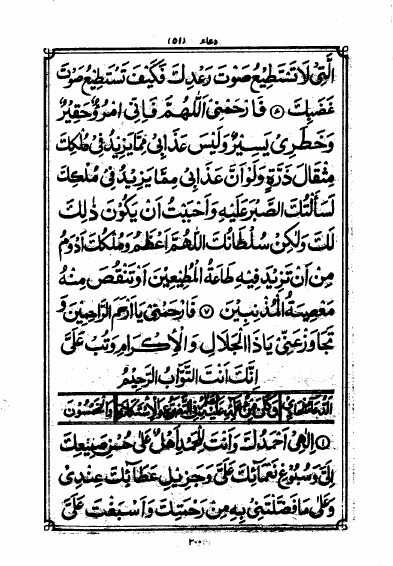 دعاء (۵۱)
الَّتِي لَا تَسْتَطِيعُ صَوْتَ رَعْدِكَ فَكَيْفَ تَسْتَطِيعُ صَوْتَ
غَضَبِكَ ۞ فَارْحَمْنِي اللّٰهُمَّ فَإِنِّي امْرُؤٌ حَقِيرٌ
وَخَطَرِي يَسِيرٌ وَلَيْسَ عَذَابِي مِمَّا يَزِيدُ فِي مُلْكِكَ
مِثْقَالَ ذَرَّةٍ وَلَوْ أَنَّ عَذَابِي مِمَّا يَزِيدُ فِي مُلْكِكَ
لَسَأَلْتُكَ الصَّبْرَ عَلَيْهِ وَأَحْبَبْتُ أَنْ يَكُونَ ذٰلِكَ
لَكَ وَلٰكِنْ سُلْطَانُكَ اللّٰهُمَّ أَعْظَمُ وَمُلْكُكَ أَدْوَمُ
مِنْ أَنْ تَزِيدَ فِيهِ طَاعَةُ الْمُطِيعِينَ أَوْ تَنْقُصَ مِنْهُ
مَعْصِيَةُ الْمُذْنِبِينَ ۷ فَارْحَمْنِي يَا أَرْحَمَ الرَّاحِمِينَ وَ
تَجَاوَزْ عَنِّي يَا ذَا الْجَلَالِ وَالْإِكْرَامِ وَتُبْ عَلَيَّ
إِنَّكَ أَنْتَ التَّوَّابُ الرَّحِيمُ
وَالْخَمْسُونَ
۱ إِلٰهِي أَحْمَدُكَ وَأَنْتَ لِلْحَمْدِ أَهْلٌ عَلَى حُسْنِ صَنِيعِكَ
إِلَيَّ وَسُبُوغِ نَعْمَائِكَ عَلَيَّ وَجَزِيلِ عَطَائِكَ عِنْدِي
وَعَلَى مَا فَضَّلْتَنِي بِهِ مِنْ رَحْمَتِكَ وَأَسْبَغْتَ عَلَيَّ